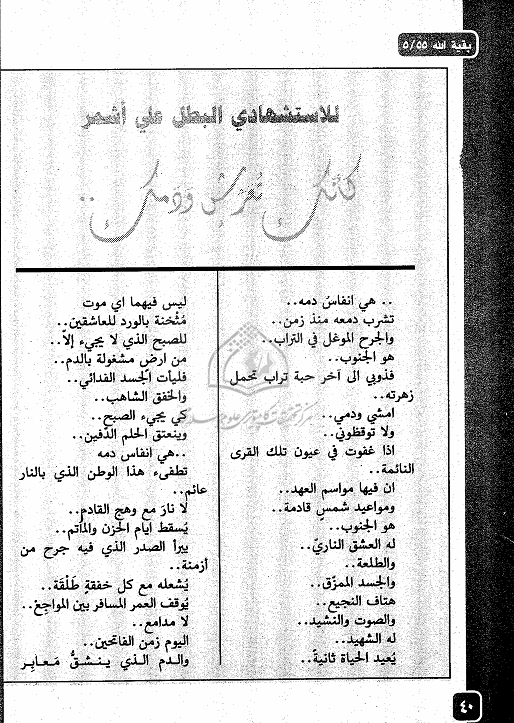 بقية الله ٥/٥٥
للاستشهادي البطل علي أشمر
كأنك تُعرّش ودمك..
.. هي انفاسَ دمه..
تشرب دمعه منذ زمن..
والجرح الموغل في التراب..
هو الجنوب..
فذوبي الى آخر حبة تراب تحمل
زهرته..
امشي ودمي..
ولا توقظوني..
اذا غفوت في عيون تلك القرى
النائمة..
ان فيها مواسم العهد..
ومواعيد شمسٍ قادمة..
هو الجنوب..
له العشق الناريّ..
والطلعة..
والجسد الممزّق..
هتاف النجيع..
والصوت والنشيد..
له الشهيد..
يُعيد الحياة ثانيةً..
ليس فيهما اي موت
مُثْخنة بالورد للعاشقين..
للصبح الذي لا يجيء إلاّ..
من ارضٍ مشغولة بالدم..
فليأت الجسد الفدائي..
والخفق الشاهب..
كي يجيء الصبح..
وينعتق الحلم الدّفين..
..هي انفاس دمه
تطفىء هذا الوطن الذي بالنار
عائم..
لا نارَ مع وهج القادم..
يُسقط ايام الحزن والمآتم..
يبرأ الصدر الذي فيه جرح من
أزمنة..
يُشعله مع كل خفقةٍ طَلْقَة..
يُوقف العمر المسافر بين المواجع..
لا مدامع..
اليوم زمن الفاتحين..
والدم الذي ينشقُّ مَعابِر
٤٠